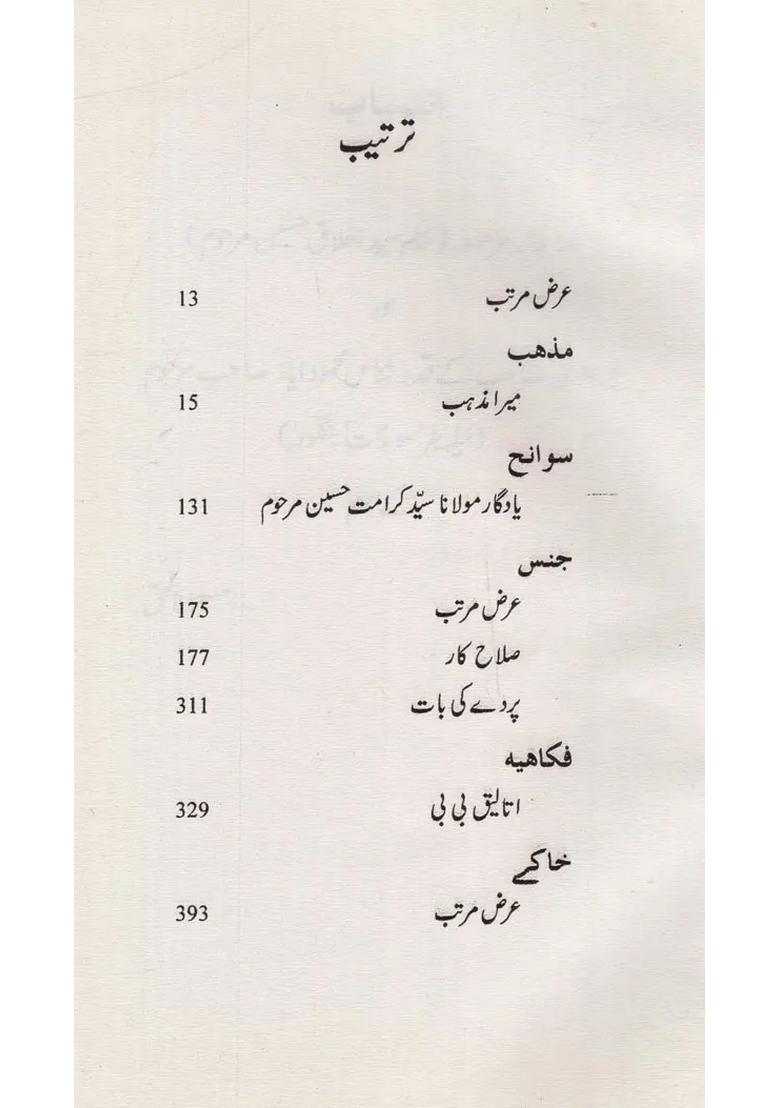 ترتیب
عرض مرتب 13
مذهب
میرا مذہب 15
سوانح
یادگار مولانا سیّد کرامت حسین مرحوم 131
جنس
عرض مرتب 175
صلاح کار 177
پردے کی بات 311
فکاهیه
اتالیق بی بی 329
خاکے
عرض مرتب 393